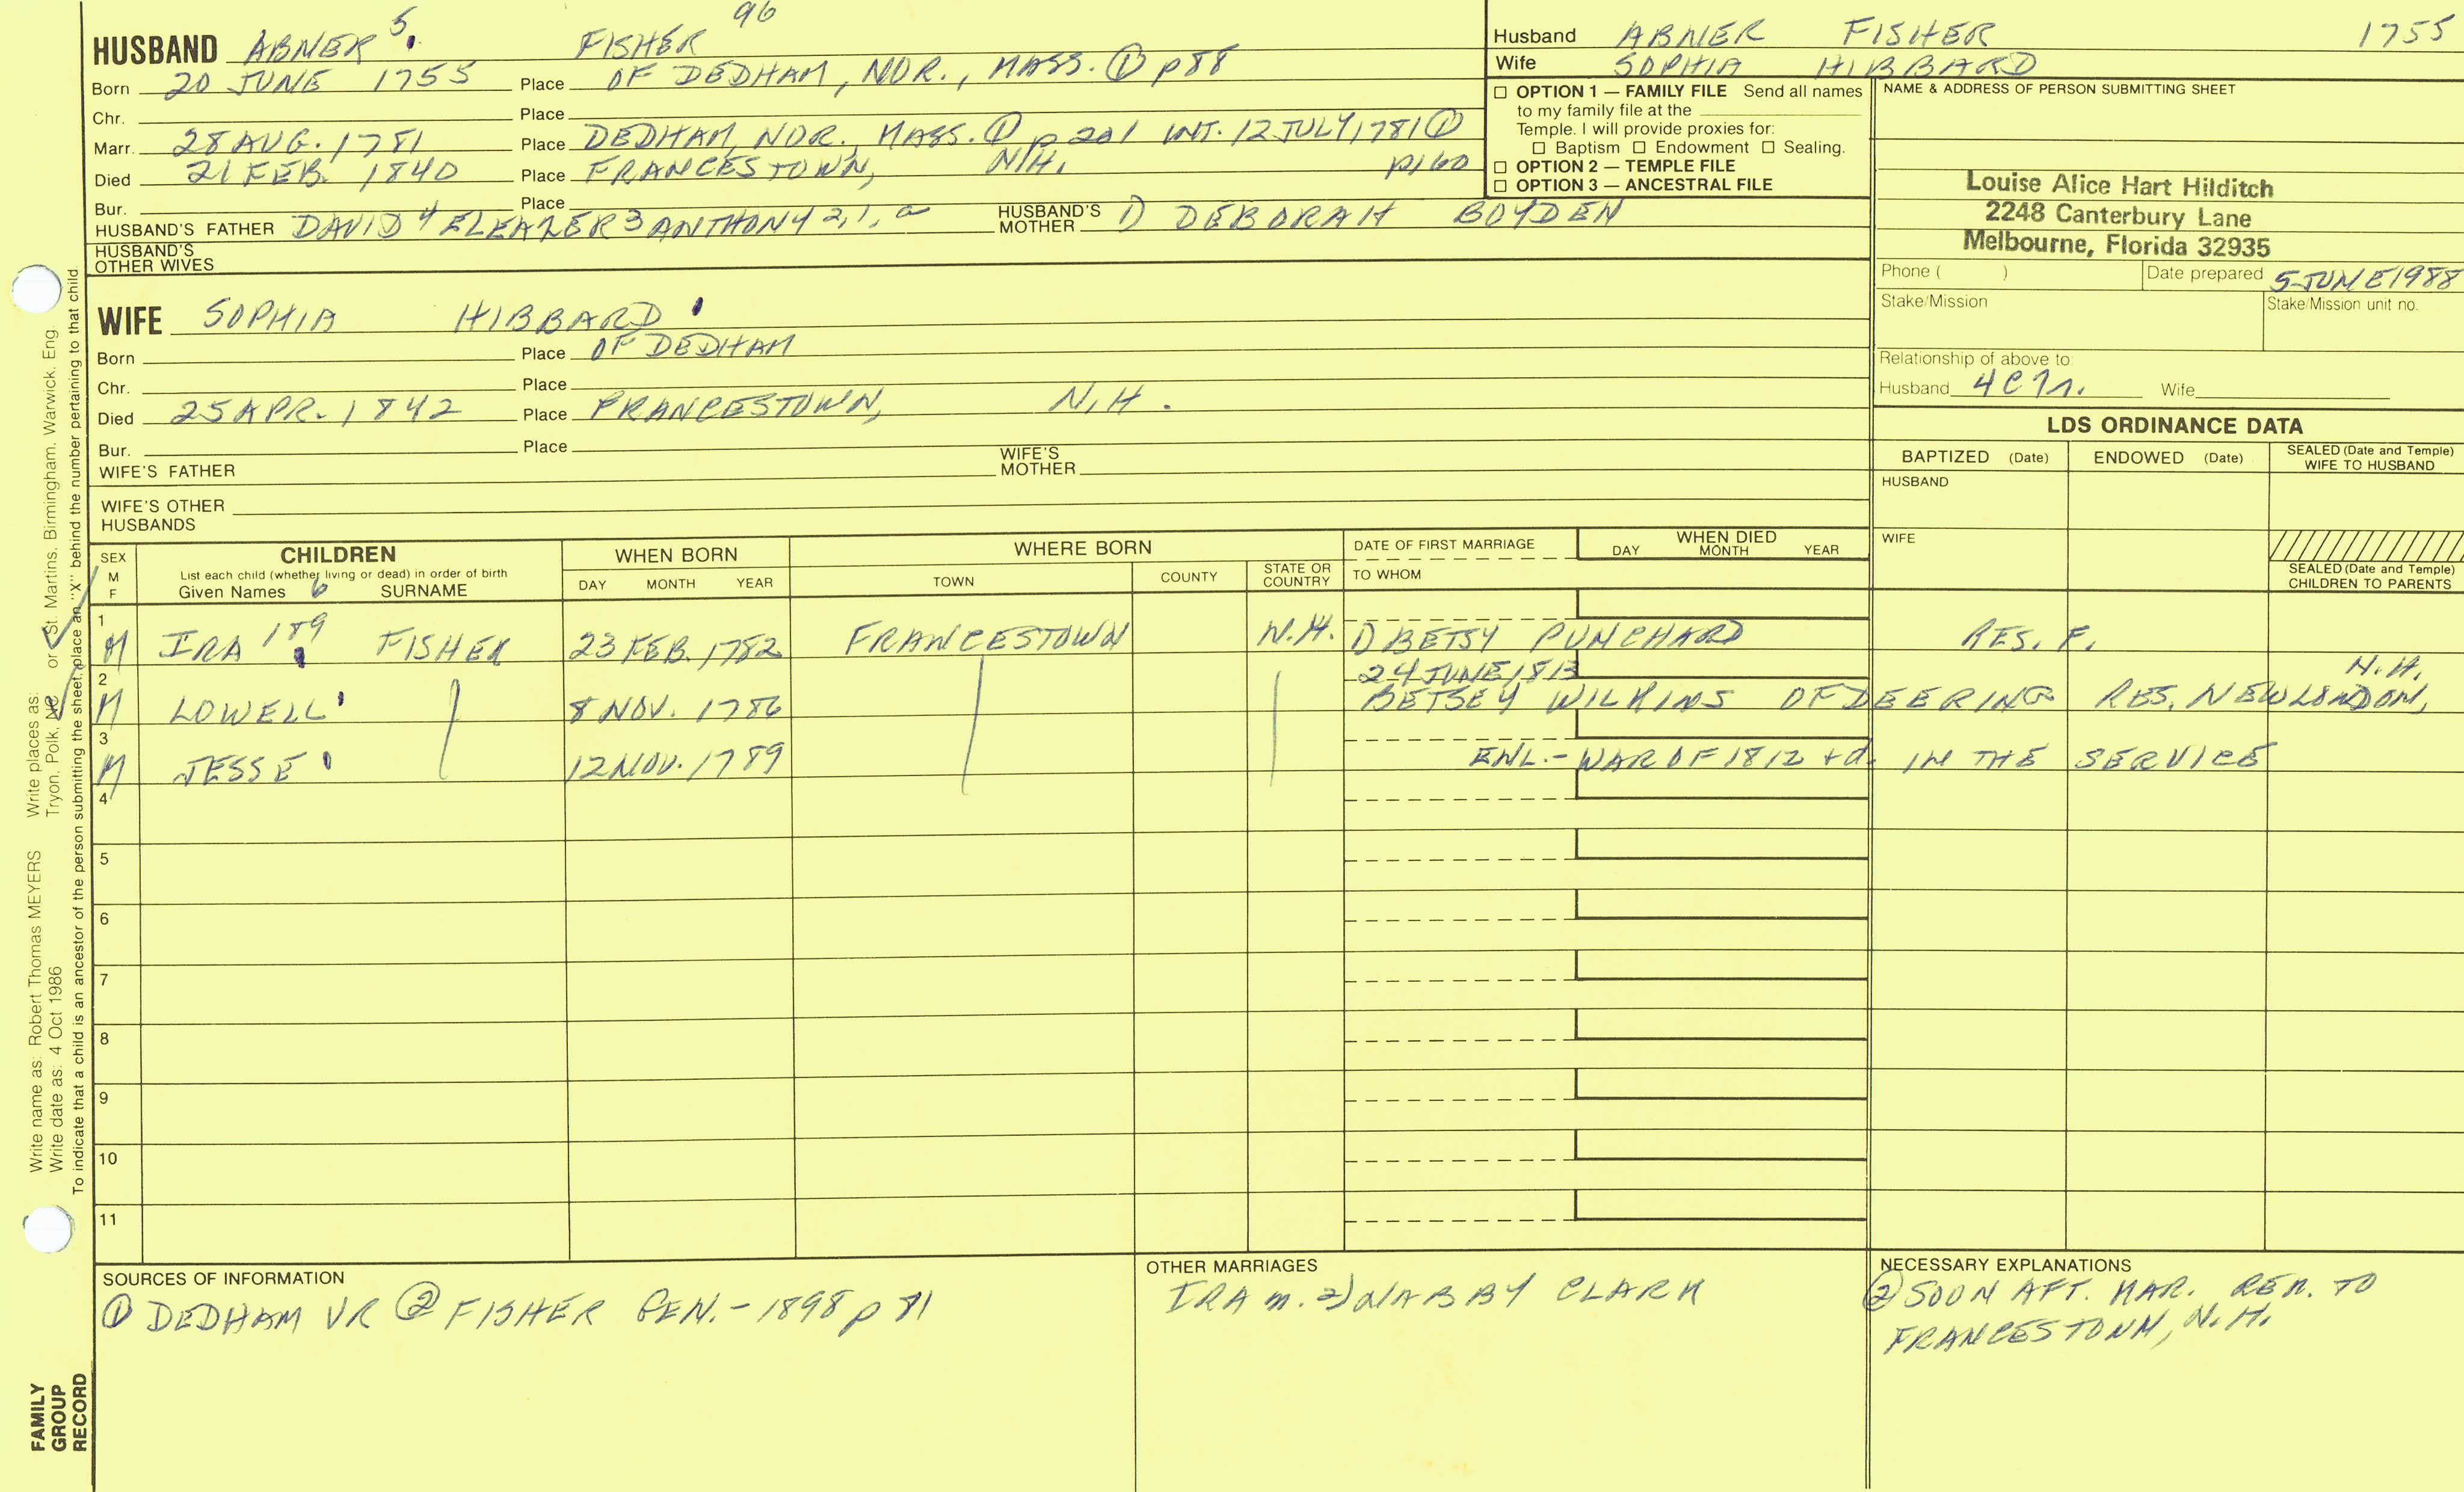 HUSBAND ABNER 5 FISHER 96
Born 20 JUNE 1755 Place OF DEDHAM, NOR., MASS. ① p 88
Chr. Place
Marr. 28 AUG. 1781 Place DEDHAM, NOR. MASS. ① p 201 INT. 12 JULY 1781 ①
Died 21 FEB. 1840 Place FRANCESTOWN, N.H. p 160
Bur. Place
HUSBAND'S FATHER DAVID 4 ELEAZER 3 ANTHONY 2, 1, a HUSBAND'S MOTHER 1) DEBORAH BOYDEN
HUSBAND'S OTHER WIVES
WIFE SOPHIA HIBBARD
Born Place OF DEDHAM
Chr. Place
Died 25 APR. 1842 Place FRANCESTOWN, N.H.
Bur. Place
WIFE'S FATHER WIFE'S MOTHER
WIFE'S OTHER HUSBANDS
Husband ABNER FISHER 1755
Wife SOPHIA HIBBARD
☐ OPTION 1 — FAMILY FILE Send all names
to my family file at the
Temple. I will provide proxies for:
☐ Baptism ☐ Endowment ☐ Sealing.
☐ OPTION 2 — TEMPLE FILE
☐ OPTION 3 — ANCESTRAL FILE
NAME & ADDRESS OF PERSON SUBMITTING SHEET
Louise Alice Hart Hilditch
2248 Canterbury Lane
Melbourne, Florida 32935
Phone ( ) Date prepared 5 JUNE 1988
Stake/Mission Stake/Mission unit no.
Relationship of above to:
Husband 4C7r. Wife
LDS ORDINANCE DATA
BAPTIZED (Date) ENDOWED (Date) SEALED (Date and Temple) WIFE TO HUSBAND
HUSBAND
WIFE
SEALED (Date and Temple) CHILDREN TO PARENTS
SEX M F
CHILDREN
List each child (whether living or dead) in order of birth
Given Names 6 SURNAME
WHEN BORN
DAY MONTH YEAR
WHERE BORN
TOWN COUNTY STATE OR COUNTRY
DATE OF FIRST MARRIAGE
TO WHOM
WHEN DIED
DAY MONTH YEAR
1 M IRA 189 FISHER 23 FEB. 1782 FRANCESTOWN N.H. 1) BETSY PUNCHARD RES. F.
24 JUNE 1813 N.H.
2 M LOWELL 8 NOV. 1786 BETSEY WILKINS OF DEERING RES. NEW LONDON,
3 M JESSE 12 NOV. 1789 ENL.- WAR OF 1812 + d. IN THE SERVICE
4
5
6
7
8
9
10
11
SOURCES OF INFORMATION
① DEDHAM VR ② FISHER GEN.- 1898 p 81
OTHER MARRIAGES
IRA m. 2) NABBY CLARK
NECESSARY EXPLANATIONS
② SOON AFT. MAR. REM. TO
FRANCESTOWN, N.H.
Write name as: Robert Thomas MEYERS Write places as:
Write date as: 4 Oct 1986 Tryon, Polk, NC or St. Martins, Birmingham, Warwick, Eng
To indicate that a child is an ancestor of the person submitting the sheet, place an "X" behind the number pertaining to that child.
FAMILY
GROUP
RECORD